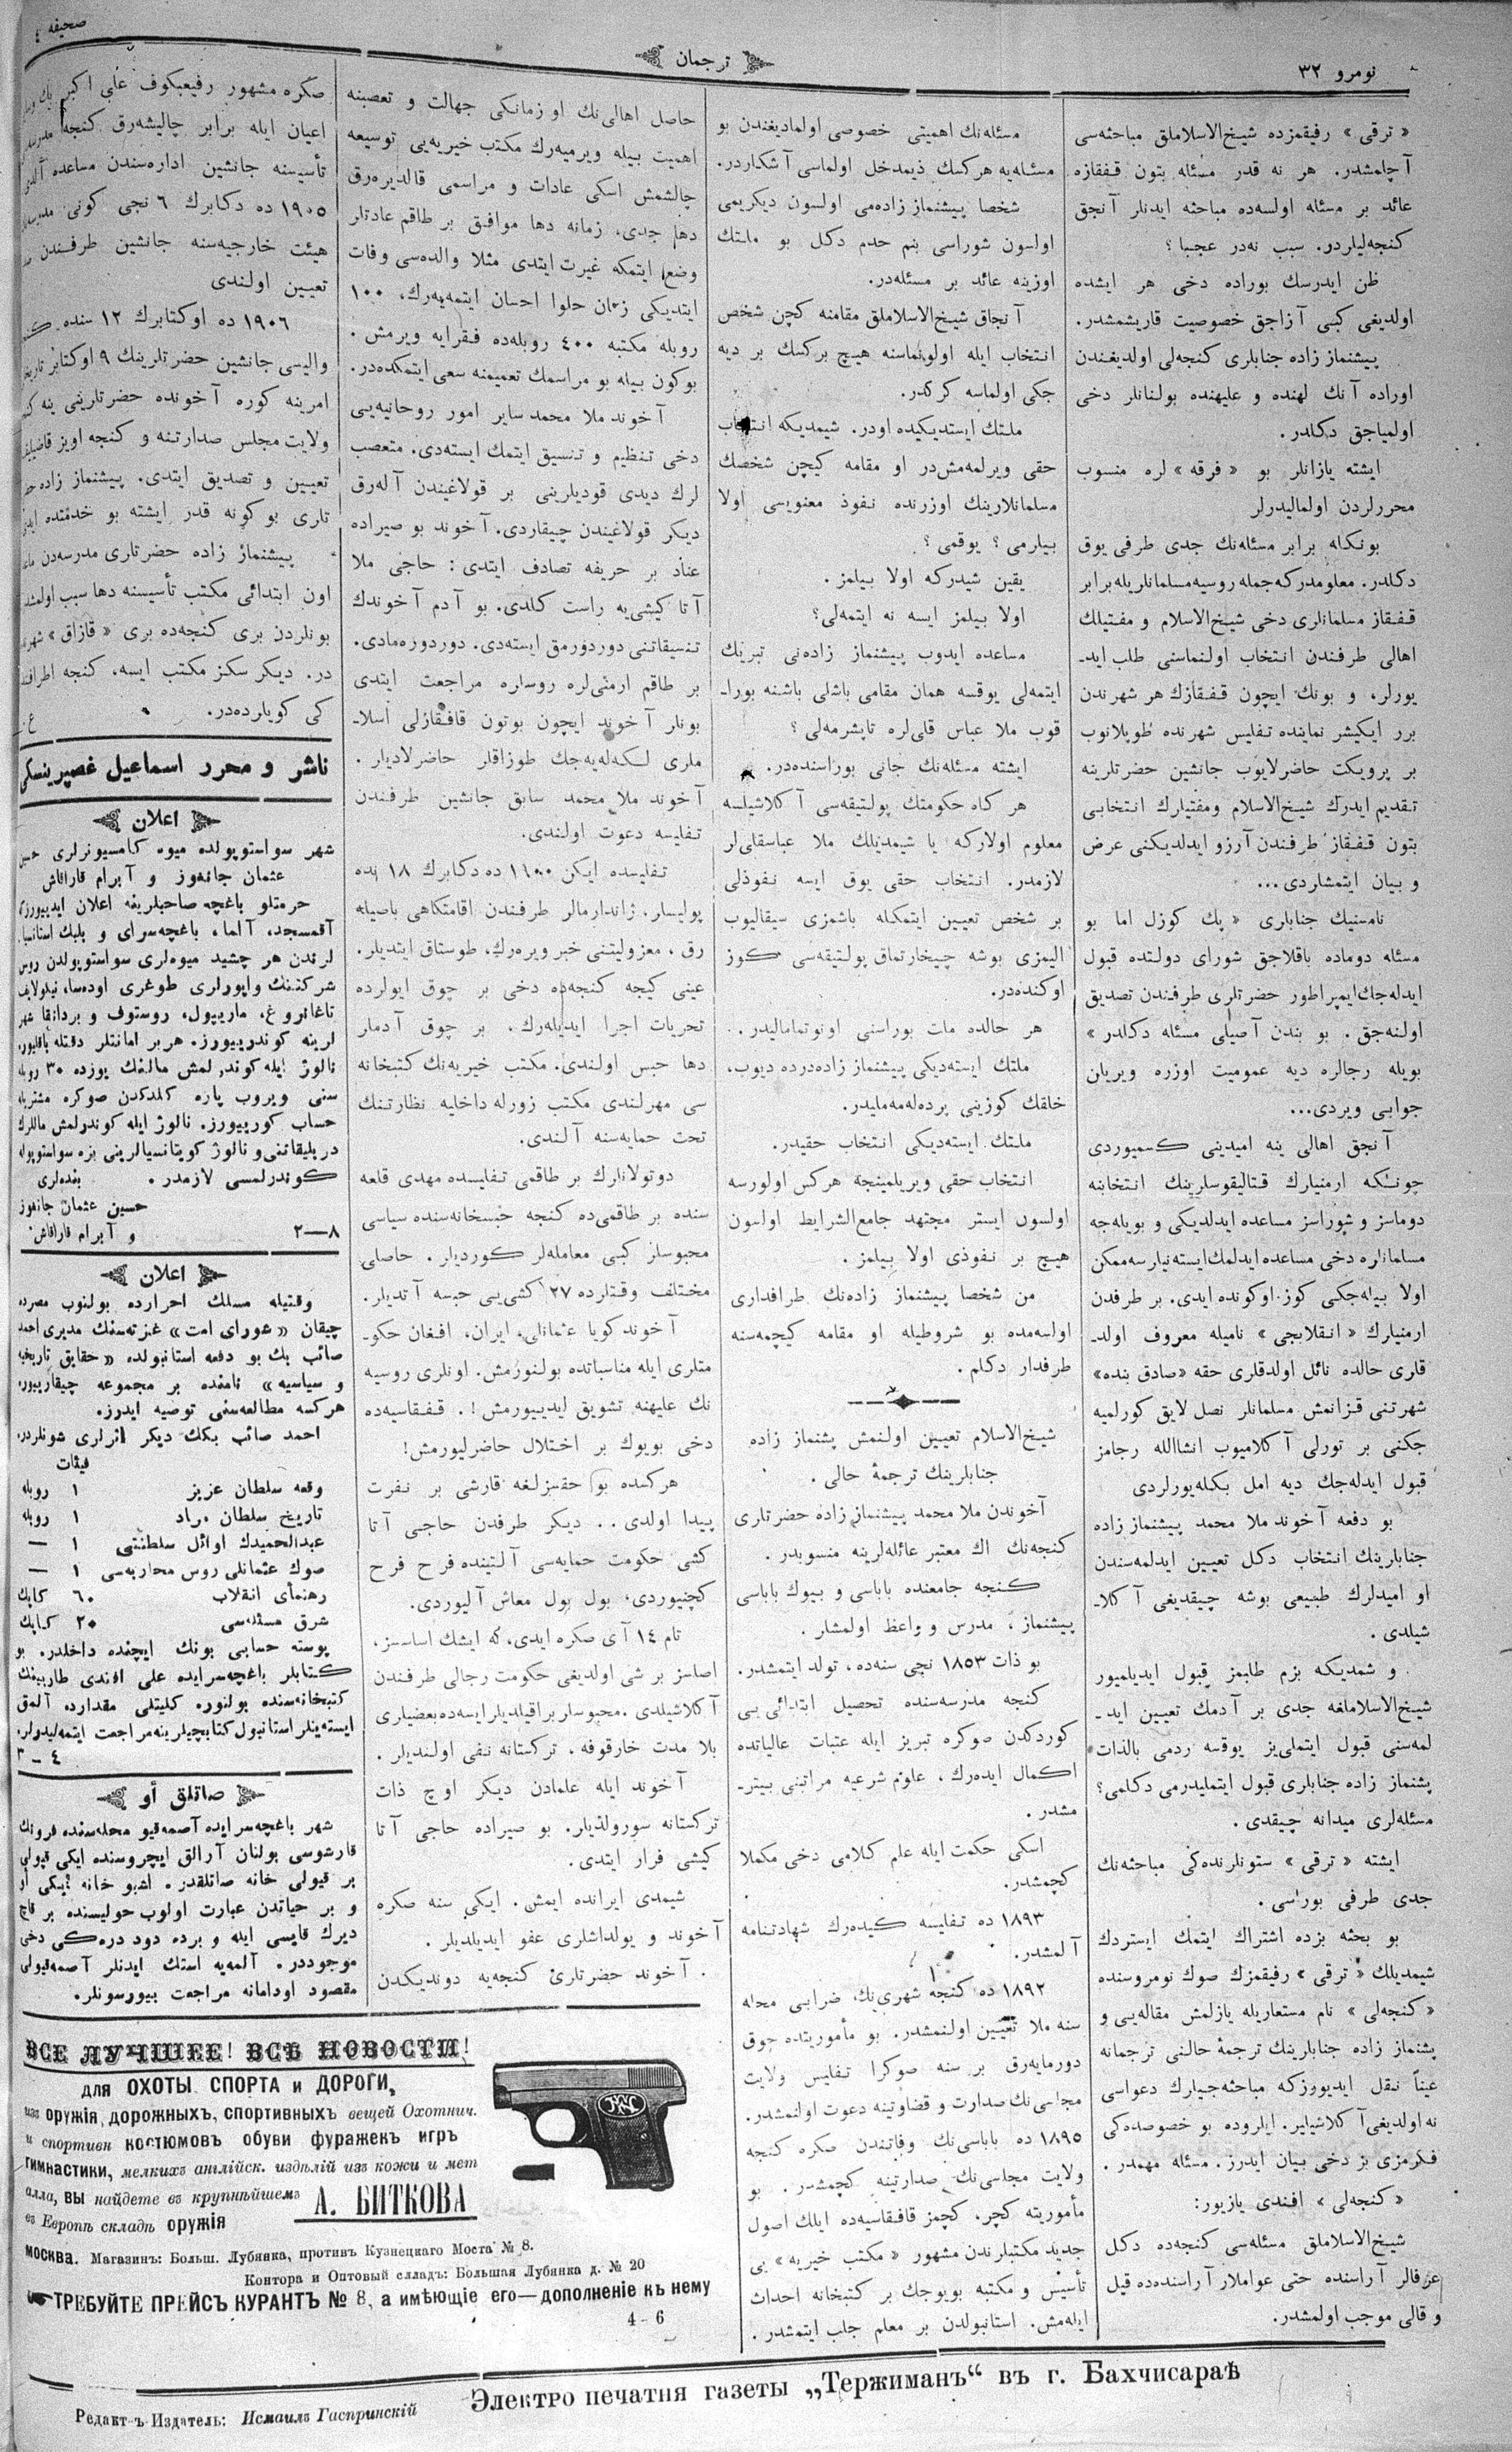 نومرو ۳۲
ترجمان
صحیفه ٤
« ترقی » رفیقمزده شیخ‌الاسلاملق مباحثه‌سی
آچلمشدر. هر نه قدر مسئله بتون قفقازه
عائد بر مسئله اولسه‌ده مباحثه ایدنلر آنجق
کنجه‌لیلردر. سبب نه‌در عجبا ؟
ظن ایدرسك بوراده دخی هر ایشده
اولدیغی کبی آزاجق خصوصیت قاریشمشدر.
پیشنماز زاده جنابلری کنجه‌لی اولدیغندن
اوراده آنك لهنده و علیهنده بولنانلر دخی
اولمیاجق دکلدر.
ایشته یازانلر بو « فرقه » لره منسوب
محررلردن اولمالیدرلر
بونکله برابر مسئله‌نك جدی طرفی یوق
دکلدر. معلومدرکه جمله روسیه مسلمانلریله برابر
قفقاز مسلمانلری دخی شیخ‌الاسلام و مفتیلك
اهالی طرفندن انتخاب اولنماسنی طلب اید-
یورلر، و بونك ایچون قفقازك هر شهرندن
برر ایکیشر نماینده تفلیس شهرنده طوپلانوب
بر پرویکت حاضرلایوب جانشین حضرتلرینه
تقدیم ایدرك شیخ‌الاسلام ومفتیلرك انتخابی
بتون قفقاز طرفندن آرزو ایدلدیکنی عرض
و بیان ایتمشلردی...
نامسنیك جنابلری « پك کوزل اما بو
مسئله دوماده باقلاجق شورای دولتده قبول
ایدله‌جك ایمپراطور حضرتلری طرفندن تصدیق
اولنه‌جق . بو بندن آصیلی مسئله دکلدر »
بویله رجالره دیه عمومیت اوزره ویریلن
جوابی ویردی...
آنجق اهالی ینه امیدینی کسمیوردی
چونکه ارمنیلرك قتالیقوسلرینك انتخابنه
دوماسز و شوراسز مساعده ایدلدیکی و بویله‌جه
مسلمانلره دخی مساعده ایدلمك ایسته‌نیلرسه ممکن
اولا بیله‌جکی کوز اوکونده ایدی. بر طرفدن
ارمنیلرك « انقلابجی » نامیله معروف اولد-
قلری حالده نائل اولدقلری حقه «صادق بنده»
شهرتنی قزانمش مسلمانلر نصل لایق کورلمیه
جکنی بر تورلی آکلامیوب انشاالله رجامز
قبول ایدله‌جك دیه امل بکله‌یورلردی
بو دفعه آخوند ملا محمد پیشنماز زاده
جنابلرینك انتخاب دکل تعیین ایدلمه‌سندن
او امیدلرك طبیعی بوشه چیقدیغی آکلا-
شیلدی .
و شمدیکه بزم طلبمز قبول ایدیلمیور
شیخ‌الاسلاملغه جدی بر آدمك تعیین اید-
لمه‌سنی قبول ایتملی‌یز یوقسه ردمی بالذات
پشنماز زاده جنابلری قبول ایتملیدرمی دکلمی؟
مسئله‌لری میدانه چیقدی.
ایشته « ترقی » ستونلرنده‌کی مباحثه‌نك
جدی طرفی بوراسی .
بو بحثه بزده اشتراك ایتمك ایستردك
شیمدیلك « ترقی » رفیقمزك صوك نومروسنده
« کنجه‌لی » نام مستعاریله یازلمش مقاله‌یی و
پشنماز زاده جنابلرینك ترجمهٔ حالنی ترجمانه
عیناً نقل ایدیورزکه مباحثه‌جیلرك دعواسی
نه اولدیغی آکلاشیلیر. ایلروده بو خصوصده‌کی
فکرمزی بز دخی بیان ایدرز. مسئله مهمدر .
« کنجه‌لی » افندی یازیور:
شیخ‌الاسلاملق مسئله‌سی کنجه‌ده دکل
عرفالر آراسنده حتی عواملار آراسنده‌ده قیل
و قالی موجب اولمشدر.
مسئله‌نك اهمیتی خصوصی اولمادیغندن بو
مسئله‌یه هرکسك ذیمدخل اولماسی آشکاردر.
شخصا پیشنماز زاده‌می اولسون دیکریمی
اولسون شوراسی بنم حدم دکل بو ملتك
اوزینه عائد بر مسئله‌در.
آنجاق شیخ‌الاسلاملق مقامنه کچن شخص
انتخاب ایله اولونماسنه هیچ برکسك بر دیه
جکی اولماسه کرکدر.
ملتك ایستدیکیده اودر. شیمدیکه انتخاب
حقی ویرلمه‌مش‌در او مقامه کیچن شخصك
مسلمانلارینك اوزرنده نفوذ معنویسی اولا
بیلرمی ؟ یوقمی ؟
یقین شیدرکه اولا بیلمز .
اولا بیلمز ایسه نه ایتمه‌لی؟
مساعده ایدوب پیشنماز زاده‌نی تبریك
ایتمه‌لی یوقسه همان مقامی باشلی باشنه بورا-
قوب ملا عباس قلی‌لره تاپشرمه‌لی ؟
ایشته مسئله‌نك جانی بوراسنده‌در.
هر کاه حکومتك پولتیقه‌سی آکلاشیلسه
معلوم اولارکه یا شیمدیلك ملا عباسقلی‌لر
لازمدر. انتخاب حقی یوق ایسه نفوذلی
بر شخص تعیین ایتمکله باشمزی سیقالیوب
الیمزی بوشه چیخارتماق پولتیقه‌سی کوز
اوکنده‌در.
هر حالده ملت بوراسنی اونوتمامالیدر.
ملتك ایسته‌دیکی پیشنماز زاده‌درده دیوب،
خلقك کوزینی پرده‌له‌مه‌ملیدر.
ملتك ایسته‌دیکی انتخاب حقیدر.
انتخاب حقی ویریلمینجه هرکس اولورسه
اولسون ایستر مجتهد جامع‌الشرایط اولسون
هیچ بر نفوذی اولا بیلمز .
من شخصا پیشنماز زاده‌نك طرافداری
اولسه‌مده بو شروطیله او مقامه کیچمه‌سنه
طرفدار دکلم .
شیخ‌الاسلام تعیین اولنمش پشنماز زاده
جنابلرینك ترجمهٔ حالی .
آخوندن ملا محمد پیشنماز زاده حضرتلری
کنجه‌نك اك معتبر عائله‌لرینه منسوبدر .
کنجه جامعنده باباسی و بیوك باباسی
پیشنماز ، مدرس و واعظ اولمشلر .
بو ذات ۱۸٥۳ نجی سنه‌ده، تولد ایتمشدر.
کنجه مدرسه‌سنده تحصیل ابتدائی‌یی
کوردکدن صوکره تبریز ایله عتبات عالیاتده
اکمال ایده‌رك ، علوم شرعیه مراتبنی بیتر-
مشدر .
اسکی حکمت ایله علم کلامی دخی مکملا
کچمشدر.
۱۸۹۳ ده تفلیسه کیده‌رك شهادتنامه
آلمشدر.
۱۸۹۲ ده کنجه شهری‌نك، ضرابی محله
سنه ملا تعیین اولنمشدر. بو مأموریتده چوق
دورمایه‌رق بر سنه صوکرا تفلیس ولایت
مجلسی‌نك صدارت و قضاوتینه دعوت اولنمشدر.
۱۸۹٥ ده باباسی‌نك وفاتیندن صکره کنجه
ولایت مجلسی‌نك صدارتینه کچمشدر. بو
مأموریته کچر، کچمز قافقاسیه‌ده ایلك اصول
جدید مکتبلرندن مشهور « مکتب خیریه » یی
تأسیس و مکتبه بویوجك بر کتبخانه احداث
ایله‌مش. استانبولدن بر معلم جلب ایتمشدر .
حاصل اهالی‌نك او زمانکی جهالت و تعصبنه
اهمیت بیله ویرمیه‌رك مکتب خیریه‌یی توسیعه
چالشمش اسکی عادات و مراسمی قالدیره‌رق
دها جدی، زمانه دها موافق بر طاقم عادتلر
وضع ایتمکه غیرت ایتدی مثلا والده‌سی وفات
ایتدیکی زمان حلوا احسان ایتمه‌یه‌رك، ۱۰۰
روبله مکتبه ٤۰۰ روبله‌ده فقرایه ویرمش .
بوکون بیله بو مراسمك تعمیمنه سعی ایتمکده‌در.
آخوند ملا محمد سایر امور روحانیه‌یی
دخی تنظیم و تنسیق ایتمك ایسته‌دی. متعصب
لرك دیدی قودیلرینی بر قولاغیندن آله‌رق
دیکر قولاغیندن چیقاردی. آخوند بو صیراده
عناد بر حریفه تصادف ایتدی : حاجی ملا
آتا کیشی‌یه راست کلدی. بو آدم آخوندك
تنسیقاتنی دوردورمق ایسته‌دی. دوردوره‌مادی.
بر طاقم ارمنی‌لره روسلره مراجعت ایتدی
بونلر آخوند ایچون بوتون قافقازلی اسلا-
ملری لکه‌له‌یه‌جك طوزاقلر حاضرلادیلر .
آخوند ملا محمد سابق جانشین طرفندن
تفلیسه دعوت اولندی.
تفلیسده ایکن ۱٦۰۰ ده دکابرك ۱۸ نده
پولیسلر، ژاندارمالر طرفندن اقامتکاهی باصیله
رق ، معزولیتنی خبر ویره‌رك، طوستاق ایتدیلر.
عینی کیجه کنجه‌ده دخی بر چوق ایولرده
تحریات اجرا ایدیله‌رك، بر چوق آدملر
دها حبس اولندی. مکتب خیریه‌نك کتبخانه
سی مهرلندی مکتب زورله داخلیه نظارتنك
تحت حمایه‌سنه آلندی.
دوتولانلرك بر طاقمی تفلیسده مهدی قلعه
سنده بر طاقمی‌ده کنجه حبسخانه‌سنده سیاسی
محبوسلر کبی معامله‌لر کوردیلر. حاصلی
مختلف وقتلرده ۲۷ کشی‌یی حبسه آتدیلر.
آخوند کویا عثمانلی، ایران، افغان حکو-
متلری ایله مناسباتده بولنورمش. اونلری روسیه
نك علیهنه تشویق ایدییورمش!. قفقاسیه‌ده
دخی بویوك بر اختلال حاضرلیورمش!
هرکسده بو حقسزلغه قارشی بر نفرت
پیدا اولدی.. دیکر طرفدن حاجی آتا
کشی حکومت حمایه‌سی آلتینده فرح فرح
کچنیوردی، بول بول معاش آلیوردی.
تام ۱٤ آی صکره ایدی، که ایشك اساسسز،
اصلسز بر شی اولدیغی حکومت رجالی طرفندن
آکلاشیلدی. محبوسلر براقیلدیلر ایسه‌ده بعضیلری
بلا مدت خارقوفه، ترکستانه نفی اولندیلر .
آخوند ایله علمادن دیکر اوچ ذات
ترکستانه سورولدیلر. بو صیراده حاجی آتا
کیشی فرار ایتدی.
شیمدی ایرانده ایمش. ایکی سنه صکره
آخوند و یولداشلری عفو ایدیلدیلر.
آخوند حضرتلری کنجه‌یه دوندیکدن
صکره مشهور رفیعبکوف علی اکبر بك
اعیان ایله برابر چالیشه‌رق کنجه
تأسیسنه جانشین اداره‌سندن مساعده
۱۹۰٥ ده دکابرك ٦ نجی کونی
هیئت خارجیه‌سنه جانشین طرفندن
تعیین اولندی
۱۹۰٦ ده اوکتابرك ۱۲ سنده
والیسی جانشین حضرتلرینك ۹ اوکتابر
امرینه کوره آخونده حضرتلرینی ینه
ولایت مجلس صدارتنه و کنجه اویز
تعیین و تصدیق ایتدی. پیشنماز زاده
تلری بوکونه قدر ایشته بو خدمتده
پیشنماز زاده حضرتلری مدرسه‌دن
اون ابتدائی مکتب تأسیسنه دها سبب
بونلردن بری کنجه‌ده بری « قازاق »
در. دیکر سکز مکتب ایسه، کنجه
کی کویلرده‌در.
ناشر و محرر اسماعیل غصپرینسکی
اعلان
شهر سواستوپولده میوه کامسیونرلری
عثمان جانغوز و آبرام قاراقاش
حرمتلو باغچه صاحبلرینه اعلان ایدییورز
آقمسجد، آلما، باغچه‌سرای و بلبك
لرندن هر چشید میوه‌لری سواستوپولدن روس
شرکتنك واپورلری طوغری اوده‌سا، نیکولایف
تاغانروغ، ماریپول، روستوف و بردانقا شهر
لرینه کوندرییورز. هر بر امانتلر دقتله
نالوژ ایله کوندرلمش مالنك یوزده ۳۰ روبله
سنی ویروب پاره کلدکدن صوکره
حساب کورییورز. نالوژ ایله کوندرلمش ماللرك
دوبلیقاتنی و نالوژ کویتانسیالرینی بزه سواستوپوله
کوندرلمسی لازمدر . بنده‌لری
حسین عثمان جانغوز
و آبرام قاراقاش
۸—۲
اعلان
وقتیله مسلك احرارده بولنوب مصرده
چیقان «شورای امت» غزته‌سنك مدیری احمد
صائب بك بو دفعه استانبولده « حقایق تاریخیه
و سیاسیه » نامنده بر مجموعه چیقارییور،
هرکسه مطالعه‌سنی توصیه ایدرز.
احمد صائب بکك دیکر اثرلری شونلردر:
فیئات
وقعه سلطان عزیز ۱ روبله
تاریخ سلطان مراد ۱ روبله
عبدالحمیدك اوائل سلطنتی ۱ —
صوك عثمانلی روس محاربه‌سی ۱ —
رهنمای انقلاب ٦۰ کاپك
شرق مسئله‌سی ۲۰ کاپك
پوسته حسابی بونك ایچنده داخلدر. بو
کتابلر باغچه‌سرایده علی افندی طارپینك
کتبخانه‌سنده بولنور، کلیتلی مقدارده آلمق
ایسته‌ینلر استانبول کتابچیلرینه مراجعت ایتمه‌لیدرلر.
٤ – ۳
صاتلق أو
شهر باغچه‌سرایده آصمه‌قیو محله‌سنده فرونك
قارشوسی بولنان آرالق ایچروسنده ایکی قپولی
بر قپولی خانه صاتلقدر. اشبو خانه ایکی أو
و بر حیاتدن عبارت اولوب حولیسنده بر قاچ
دیرك قایسی ایله و برده دود درەکی دخی
موجوددر. آلمه‌یه استك ایدنلر آصمه‌قپولی
مقصود اودامانه مراجعت بیورسونلر.
ВСЕ ЛУЧШЕЕ! ВСѢ НОВОСТИ!
для ОХОТЫ СПОРТА и ДОРОГИ,
изъ оружія, дорожныхъ, спортивныхъ вещей Охотнич.
и спортивн костюмовъ обуви фуражекъ игръ
гимнастики, мелкихъ англійск. издѣлій изъ кожи и мет
алла, вы найдете въ крупнѣйшемъ
въ Европѣ складѣ оружія
А. БИТКОВА
МОСКВА. Магазинъ: Больш. Лубянка, противъ Кузнецкаго Моста № 8.
Контора и Оптовый складъ: Большая Лубянка д. № 20
ТРЕБУЙТЕ ПРЕЙСЪ КУРАНТЪ № 8, а имѣющіе его—дополненіе къ нему
4-6
Редакт-ъ-Издатель: Исмаилъ Гаспринскій
Электро печатня газеты „Тержиманъ“ въ г. Бахчисараѣ